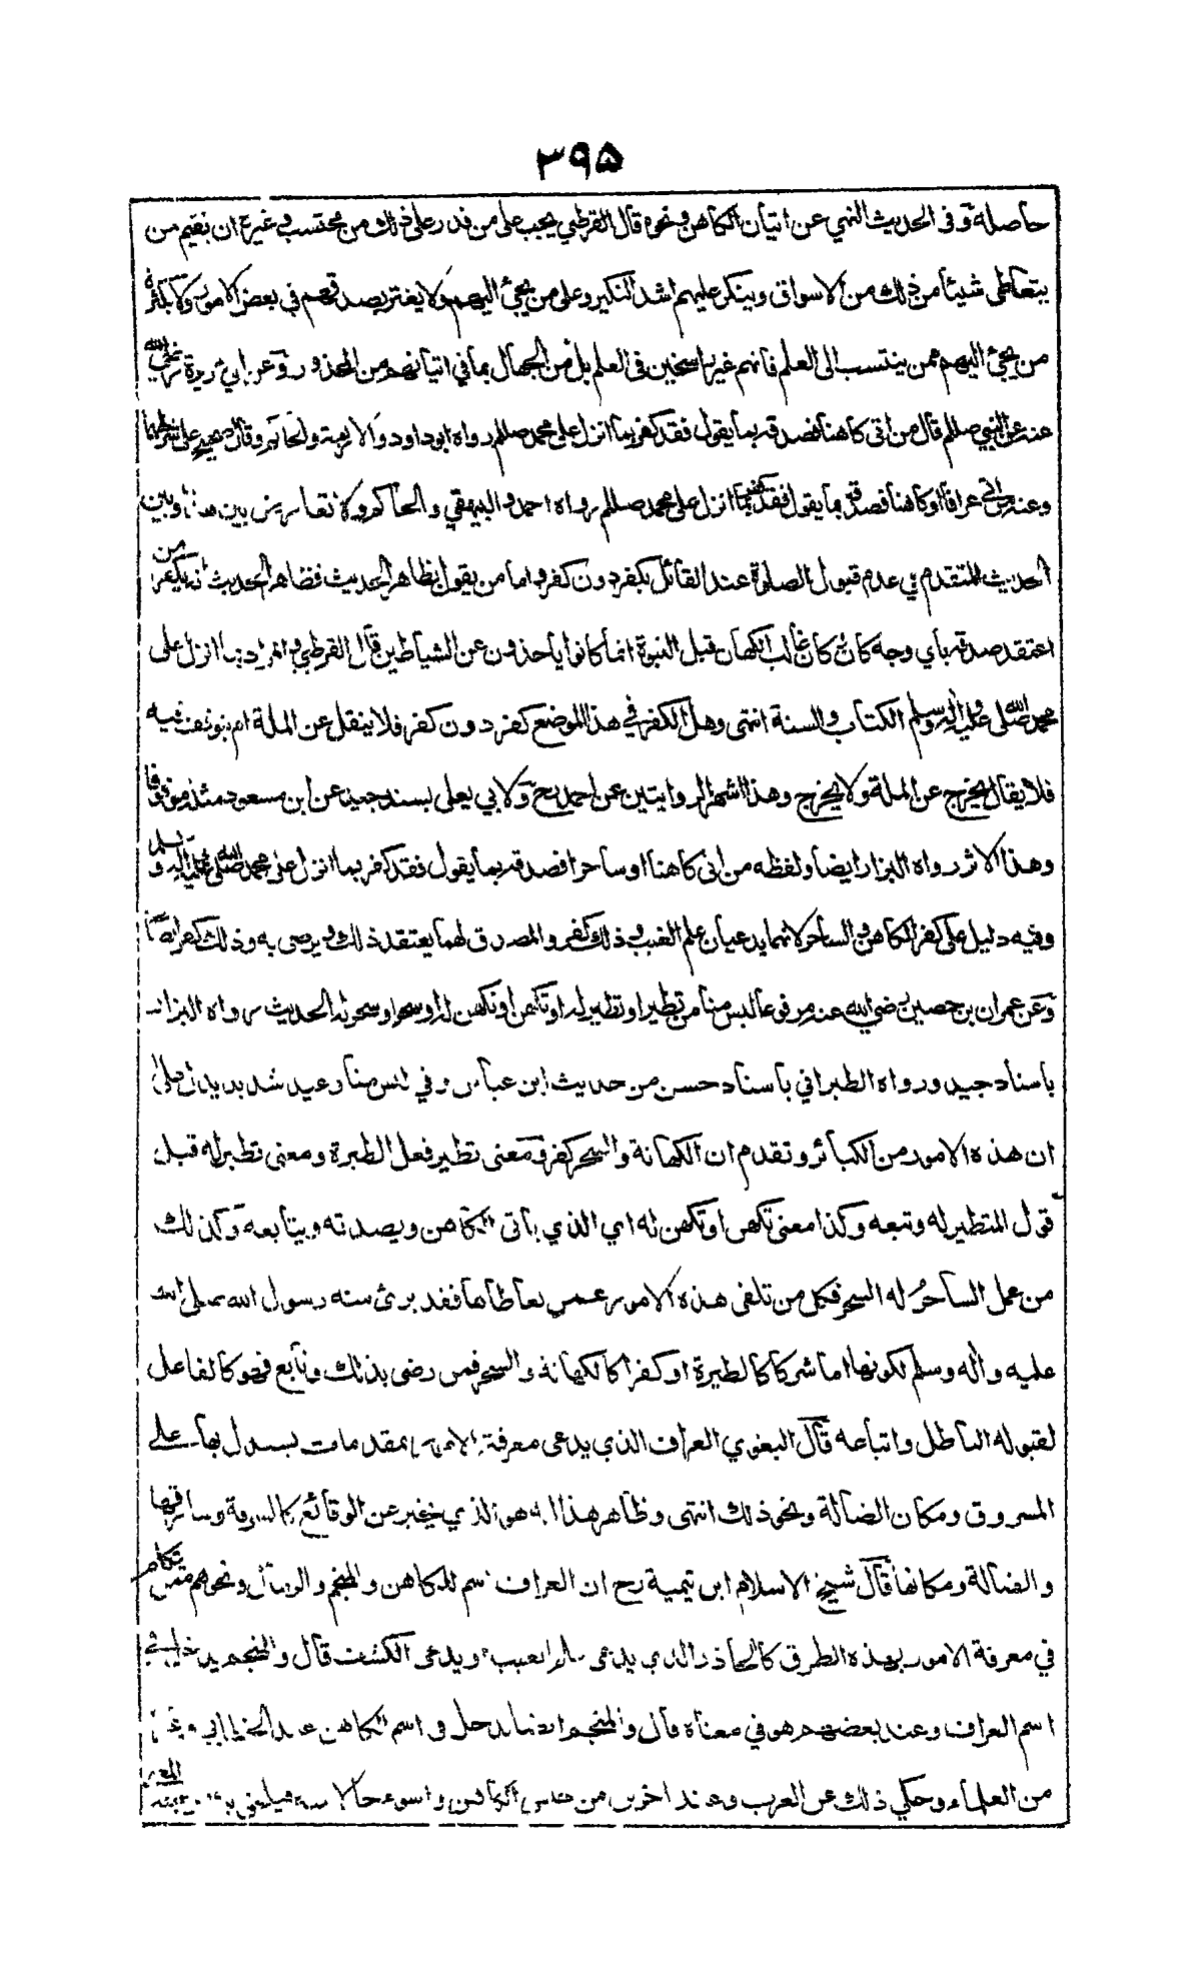 ٣٩٥
حاصله وفى الحديث النهي عن اتيان الكاهن ونحوه قال القرطبي يجب على من قدر على ذلك من محتسب وغيره ان يقيم من
يتعاطى شيئا من ذلك من الاسواق وينكر عليهم اشد النكير وعلى من يجئ اليهم ولا يغتر بصدقهم في بعض الامور ولا بكثرة
من يجئ اليهم ممن ينتسب الى العلم فانهم غير راسخين فى العلم بل من الجهال بما في اتيانهم من المحذور وعن ابي هريرة رضي الله
عنه عن النبي صللم قال من اتى كاهنا فصدقه بما يقول فقد كفر بما انزل على محمد صللم رواه ابو داود والاربعة والحاكم وقال صحيح على شرطهما
وعنه من اتى عرافا او كاهنا فصدقه بما يقول فقد كفر بما انزل على محمد صللم رواه احمد والبيهقي والحاكم ولا تعارض بين هذا وبين
الحديث المتقدم في عدم قبول الصلوة عند القائل بكفر دون كفر واما من يقول بظاهر الحديث فظاهر الحديث انه يكفر من
اعتقد صدقه بأي وجه كان كان غالب الكهان قبل النبوة انما كانوا ياخذون عن الشياطين قال القرطبي والمراد بما انزل على
محمد صلى الله عليه واله وسلم الكتاب والسنة انتهى وهل الكفر في هذا الموضع كفر دون كفر فلا ينقل عن الملة ام يتوقف فيه
فلا يقال يخرج عن الملة ولا يخرج وهذا اشهر الروايتين عن احمد رح ولابي يعلى بسند جيد عن ابن مسعود مثله موقوفا
وهذا الاثر رواه البزار ايضا ولفظه من اتى كاهنا او ساحرا فصدقه بما يقول فقد كفر بما انزل على محمد صلى الله عليه واله وسلم
وفيه دليل على كفر الكاهن والساحر لانهما يدعيان علم الغيب وذلك كفر والمصدق لهما يعتقد ذلك ويرضى به وذلك كفر ايضا
وعن عمران بن حصين رضي الله عنه مرفوعا ليس منا من تطير او تطير له او تكهن او تكهن له او سحر او سحر له الحديث رواه البزار
باسناد جيد ورواه الطبراني باسناد حسن من حديث ابن عباس وفي ليس منا وعيد شديد يدل على
ان هذه الامور من الكبائر وتقدم ان الكهانة والسحر كفر ومعنى تطير فعل الطيرة ومعنى تطير له قبل
قول المتطير له وتبعه وكذا معنى تكهن او تكهن له اي الذي يأتى الكاهن ويصدقه ويتابعه وكذلك
من عمل الساحر له السحر فكل من تلقى هذه الامور عمن تعاطاها فقد برئ منه رسول الله صلى الله
عليه واله وسلم لكونها اما شركا كالطيرة او كفرا كالكهانة والسحر فمن رضى بذلك وتابع فهو كالفاعل
لقبوله الباطل واتباعه قال البغوي العراف الذي يدعى معرفة الامور بمقدمات يستدل بها على
المسروق ومكان الضالة ونحو ذلك انتهى وظاهر هذا انه هو الذي يخبر عن الوقائع كالسرقة وسارقها
والضالة ومكانها قال شيخ الاسلام ابن تيمية رح ان العراف اسم للكاهن والمنجم والرمال ونحوهم ممن يتكلم
في معرفة الامور بهذه الطرق كالحاذر الذي يدعى علم الغيب ويدعى الكشف قال والمنجم يدخل في
اسم العراف وعند بعضهم هو في معناه قال والمنجم ايضا يدخل فى اسم الكاهن عند الخطابي وغيره
من العلماء وحكي ذلك عن العرب وعند اخرين من جنس الكاهن واسوء حالا منه فيلحق به من جهة المعنى